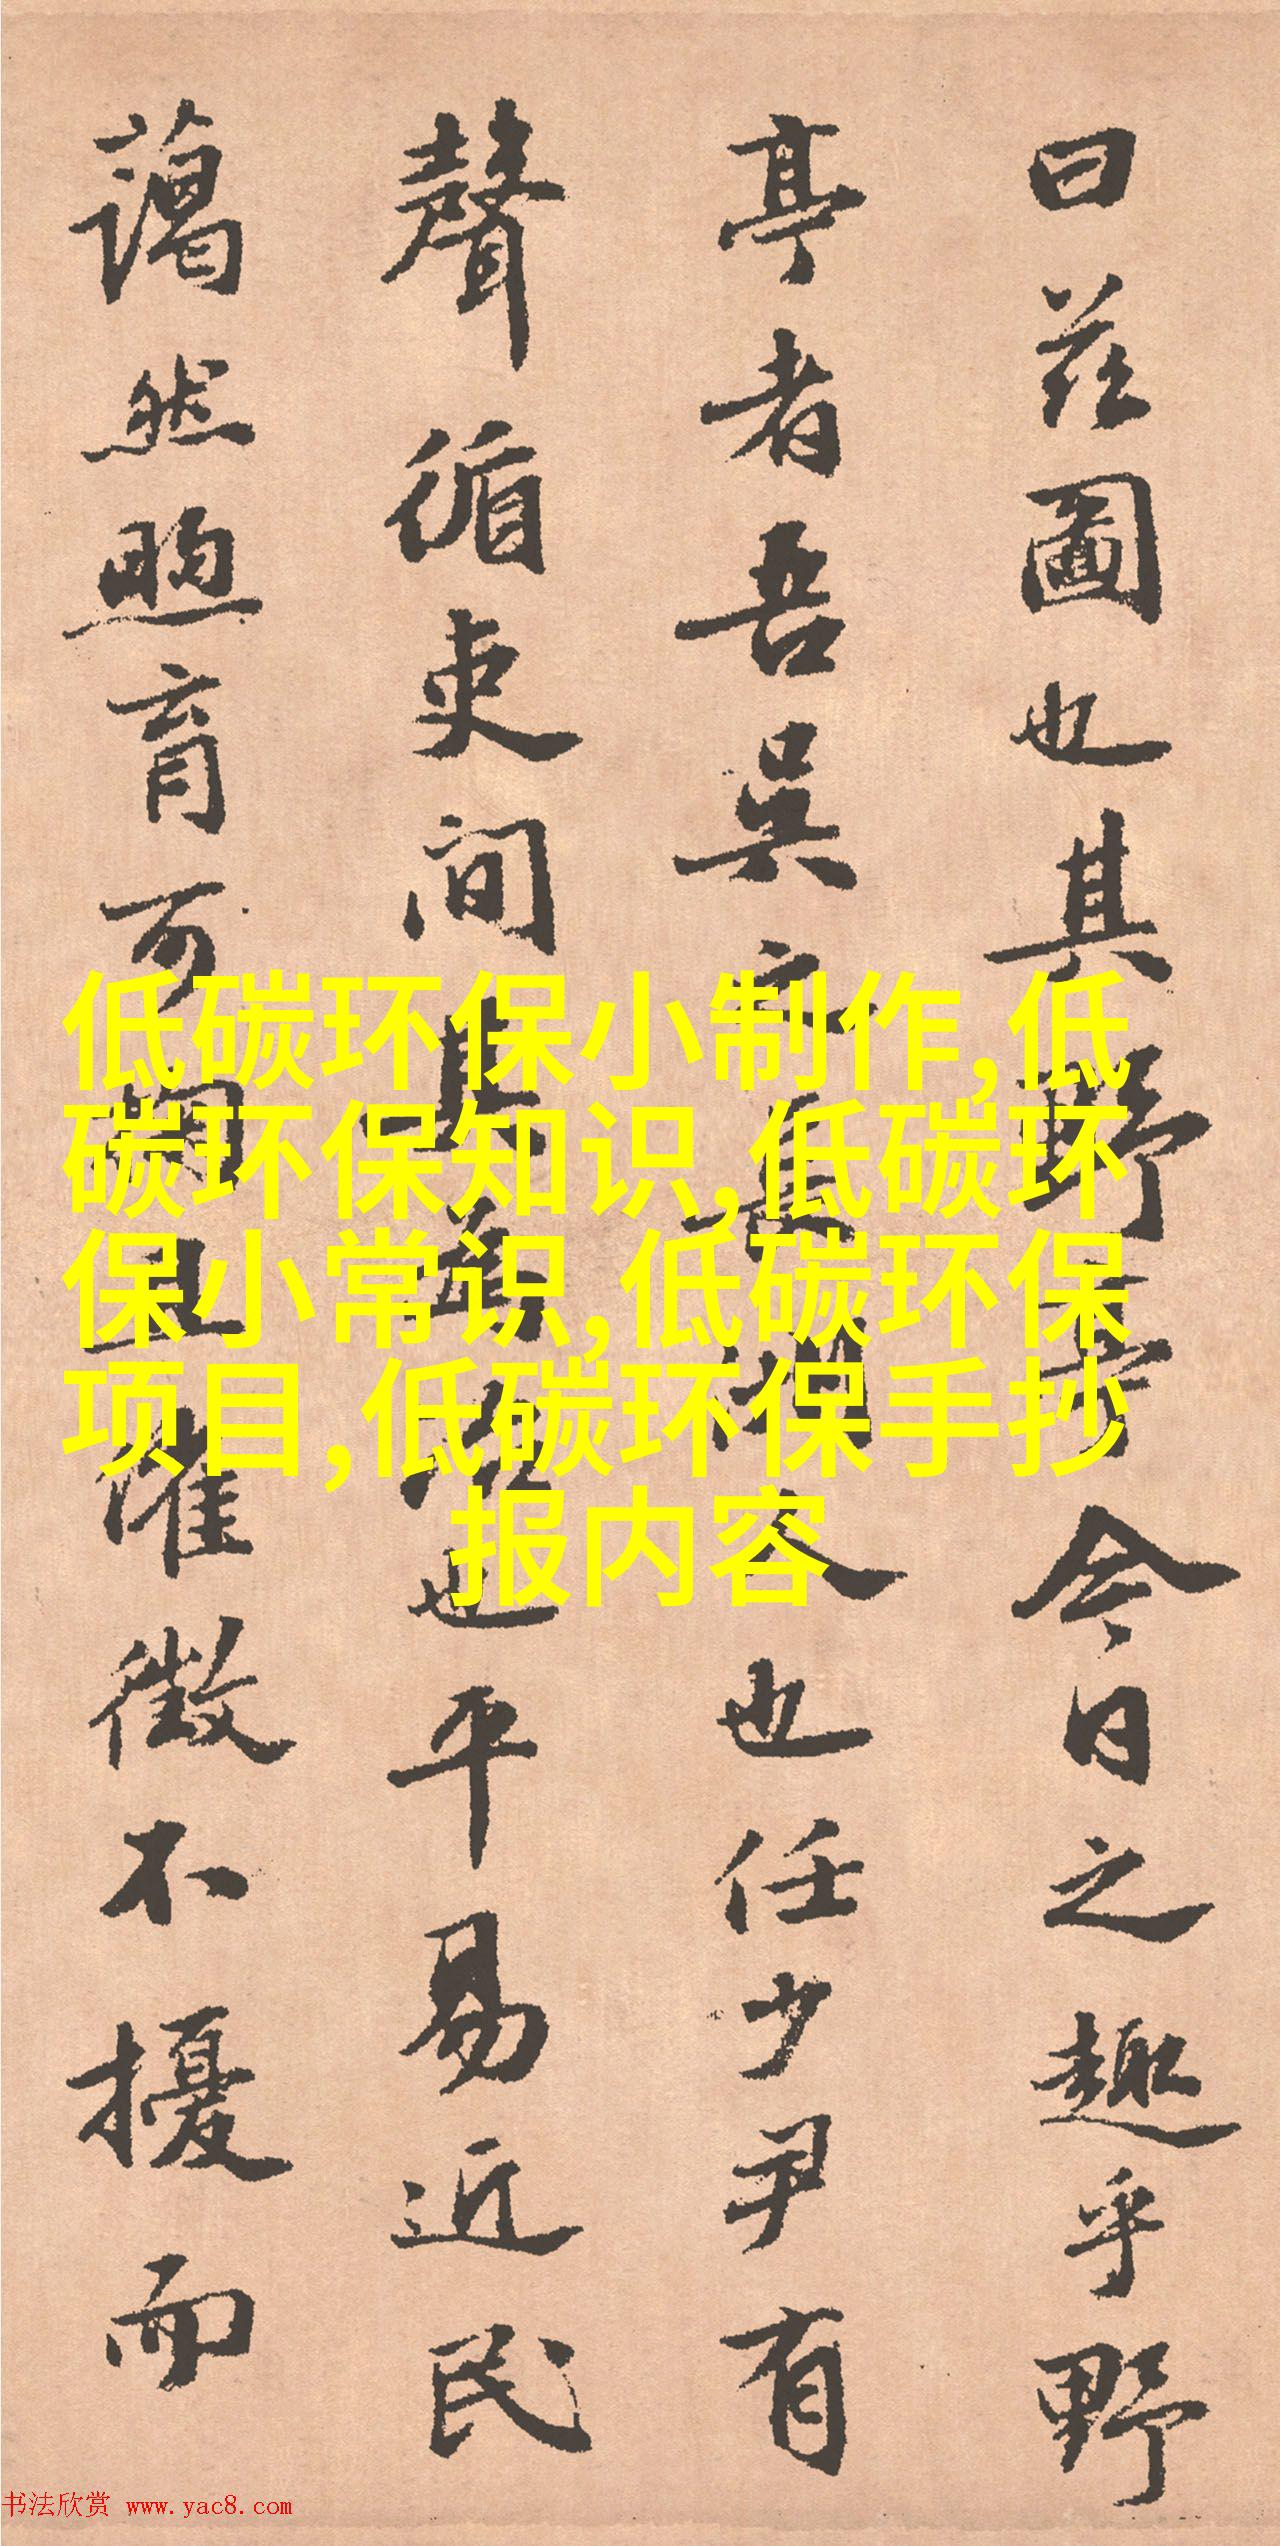 曰茲圖也其野亭今日之趣乎野
亭者吾吳之長洲人也任少尹有
聲循吏间其為政也平易近民
藹然煦育可
催徵不擾而
低碳环保小制作,低
碳环保知识,低碳环
保小常识,低碳环保
项目,低碳环保手抄
报内容
书法欣赏 www.yac8.com